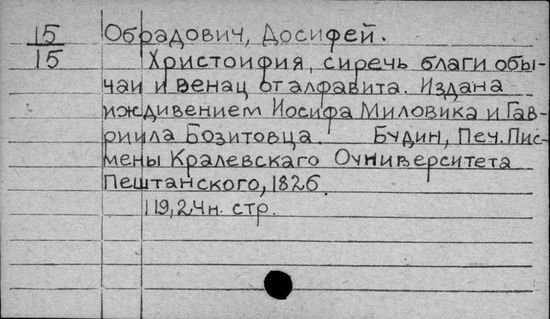 15 Обрадович, Досифей.
15 Христоифия, сиречь благи обы-
чаи и венац от алфавита. Издана
иждивением Иосифа Миловика и Гав-
риила Бозитовца. Будин, Печ. Пис-
мены Кралевскаго Оуниверситета
Пештанского, 1826.
119, 24 н. стр.